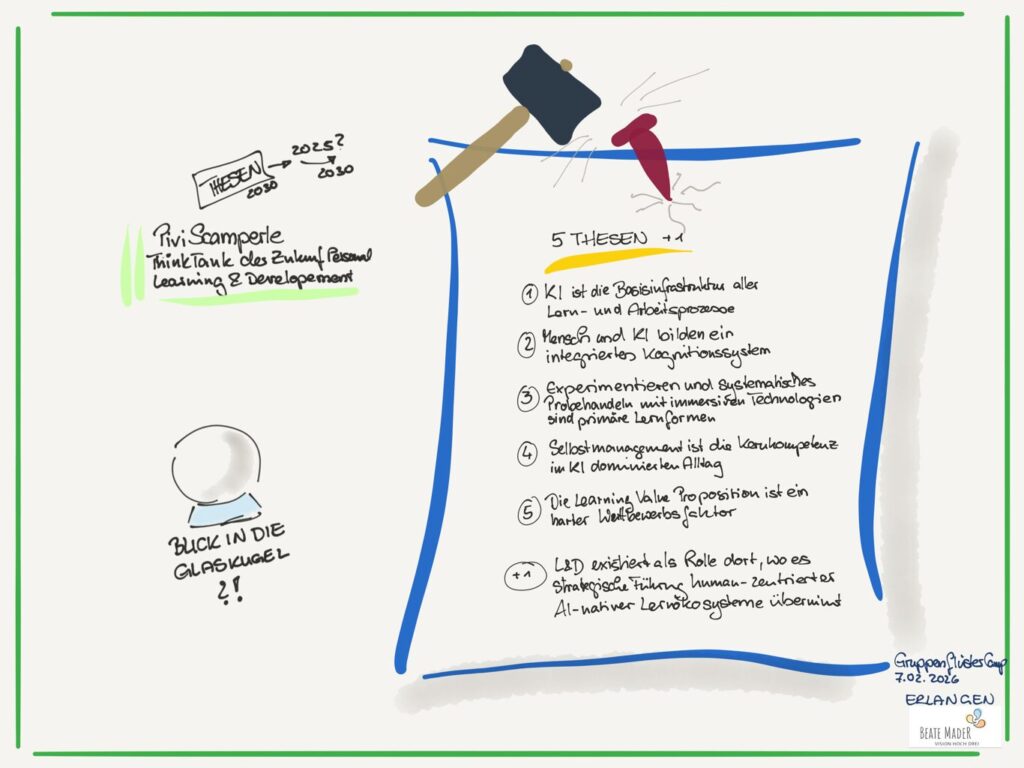 THESEN
2030
2025?
2030
Pivi Scamperle
ThinkTank des Zukunf Personal
Learning & Developement
BLICK IN DIE
GLASKUGEL
?!
5 THESEN +1
1 KI ist die Basisinfrastruktur aller
Lern- und Arbeitsprozesse
2 Mensch und KI bilden ein
integriertes Kognitionssystem
3 Experimentieren und systematisches
Probehandeln mit immersiven Technologien
sind primäre Lernformen
4 Selbstmanagement ist die Kernkompetenz
im KI dominierten Alltag
5 Die Learning Value Proposition ist ein
harter Wettbewerbsfaktor
+1 L&D existiert als Rolle dort, wo es
strategische Führung human-zentrierter
AI-nativer Lernökosysteme übernimt
GruppenflüsterCamp
7.02.2026
ERLANGEN
BEATE MADER
VISION HOCH DREI